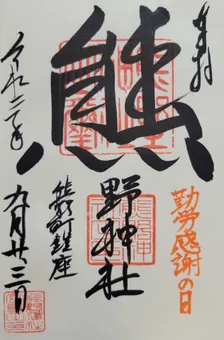 奉拝
勤労感謝の日
熊
野神社
熊野町鎮座
令和二年
九月廿三日